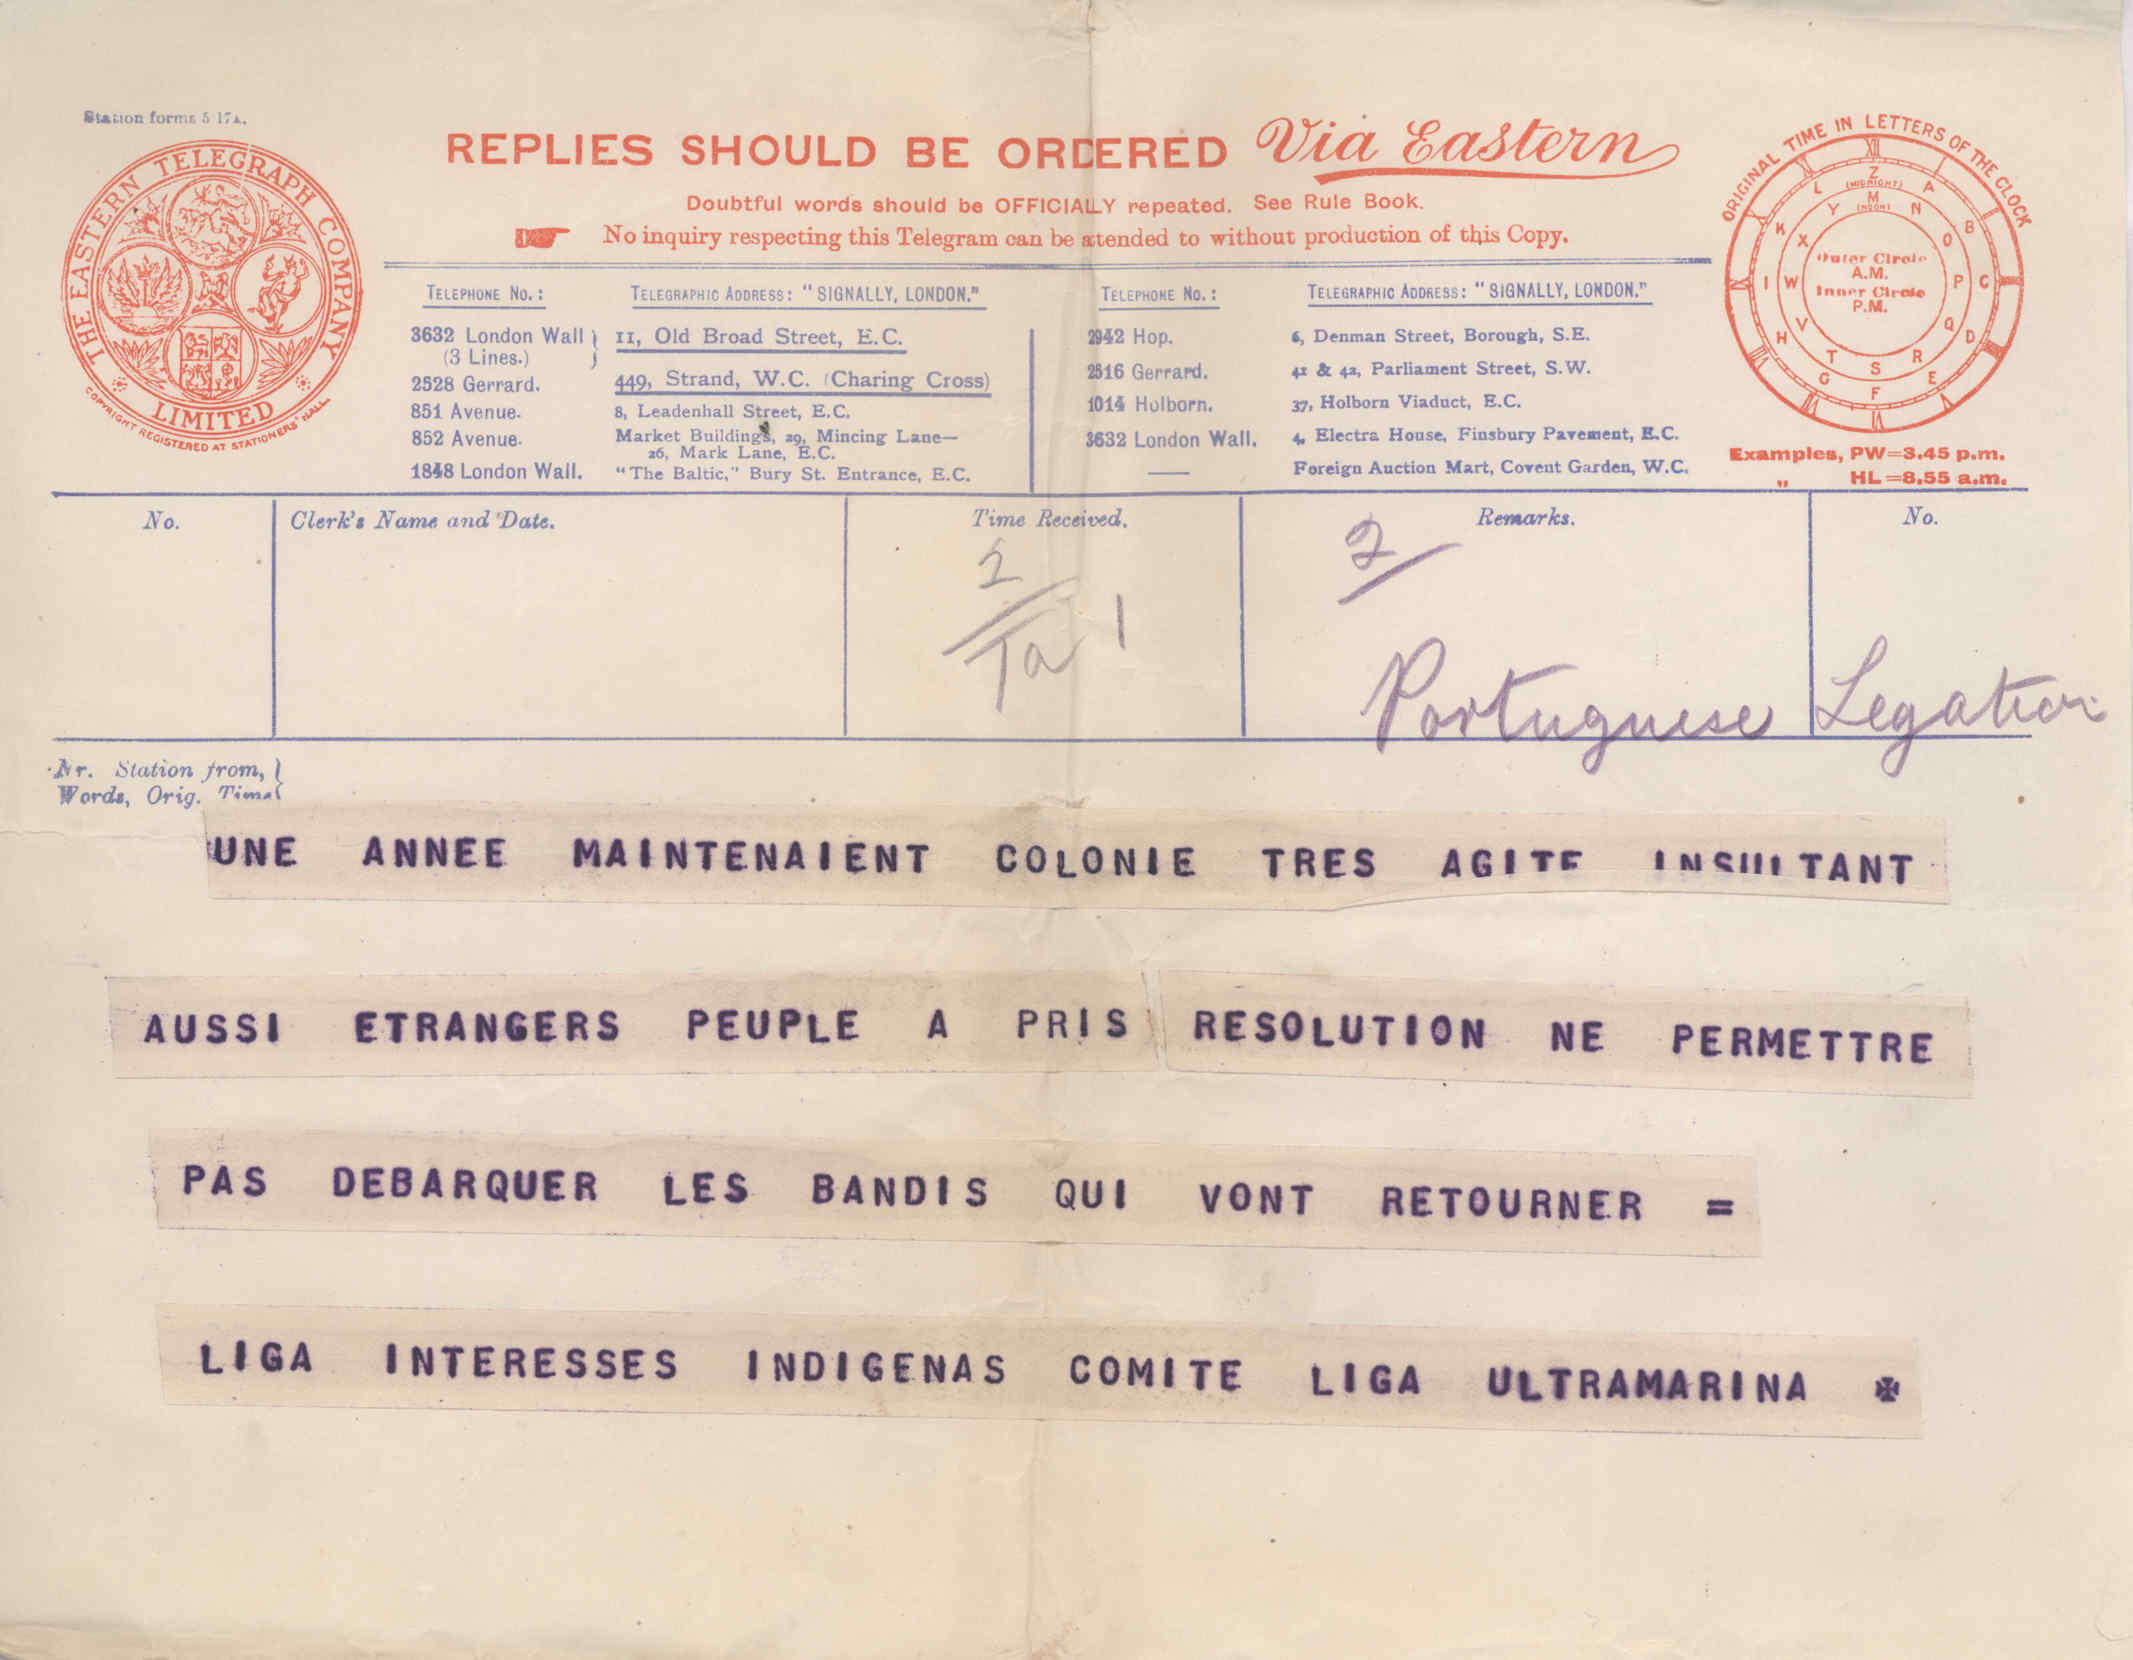 Station forms 5 17A.
THE EASTERN TELEGRAPH COMPANY
LIMITED
COPYRIGHT REGISTERED AT STATIONERS' HALL
REPLIES SHOULD BE ORDERED Via Eastern
Doubtful words should be OFFICIALLY repeated. See Rule Book.
No inquiry respecting this Telegram can be attended to without production of this Copy.
TELEPHONE NO.: TELEGRAPHIC ADDRESS: "SIGNALLY, LONDON."
3632 London Wall } 11, Old Broad Street, E.C.
(3 Lines.)
2528 Gerrard. 449, Strand, W.C. (Charing Cross)
851 Avenue. 8, Leadenhall Street, E.C.
852 Avenue. Market Buildings, 29, Mincing Lane—
26, Mark Lane, E.C.
1848 London Wall. "The Baltic," Bury St. Entrance, E.C.
TELEPHONE NO.: TELEGRAPHIC ADDRESS: "SIGNALLY, LONDON."
2942 Hop. 6, Denman Street, Borough, S.E.
2516 Gerrard. 41 & 42, Parliament Street, S.W.
1014 Holborn. 37, Holborn Viaduct, E.C.
3632 London Wall. 4, Electra House, Finsbury Pavement, E.C.
— Foreign Auction Mart, Covent Garden, W.C.
ORIGINAL TIME IN LETTERS OF THE CLOCK
XII
Z
(MIDNIGHT)
M
(NOON)
A B C D E F G H I K L
N O P Q R S T V W X Y
Outer Circle
A.M.
Inner Circle
P.M.
Examples, PW=3.45 p.m.
" HL=8.55 a.m.
No. Clerk's Name and Date. Time Received. Remarks. No.
2
2
Ta 1
Portuguese Legation
Nr. Station from, }
Words, Orig. Time
UNE ANNEE MAINTENAIENT COLONIE TRES AGITE INSULTANT
AUSSI ETRANGERS PEUPLE A PRIS RESOLUTION NE PERMETTRE
PAS DEBARQUER LES BANDIS QUI VONT RETOURNER =
LIGA INTERESSES INDIGENAS COMITE LIGA ULTRAMARINA